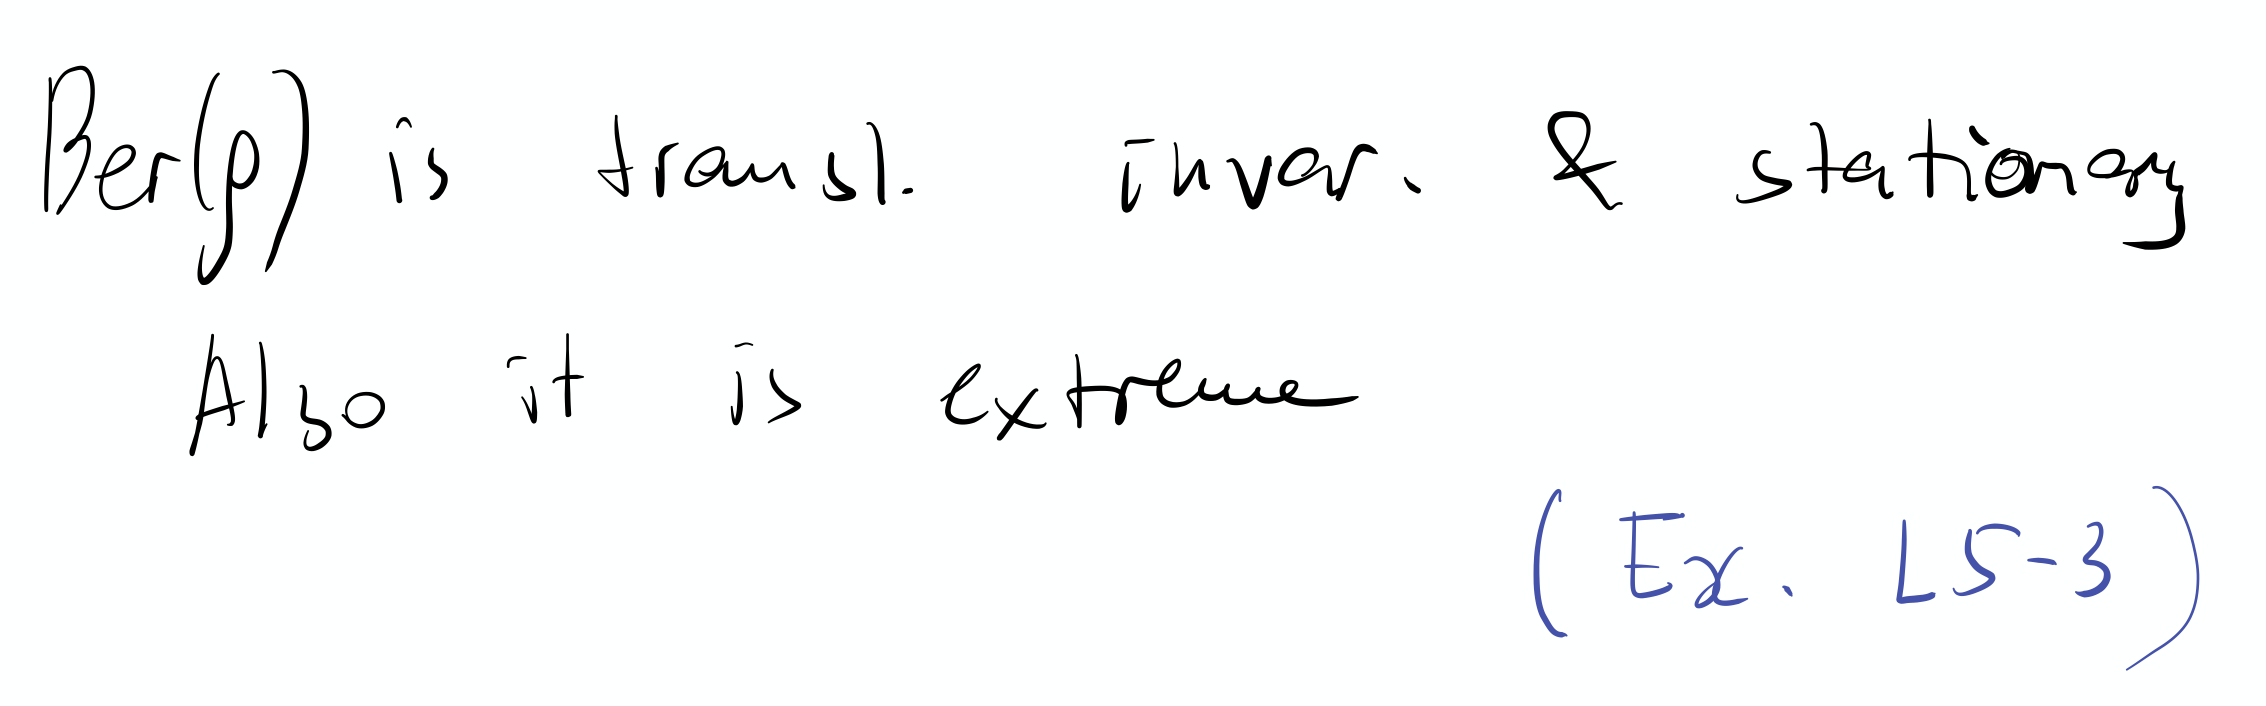 Ber(ρ) is transl. invar. & stationary
Also it is extreme
(Ex. L5-3)